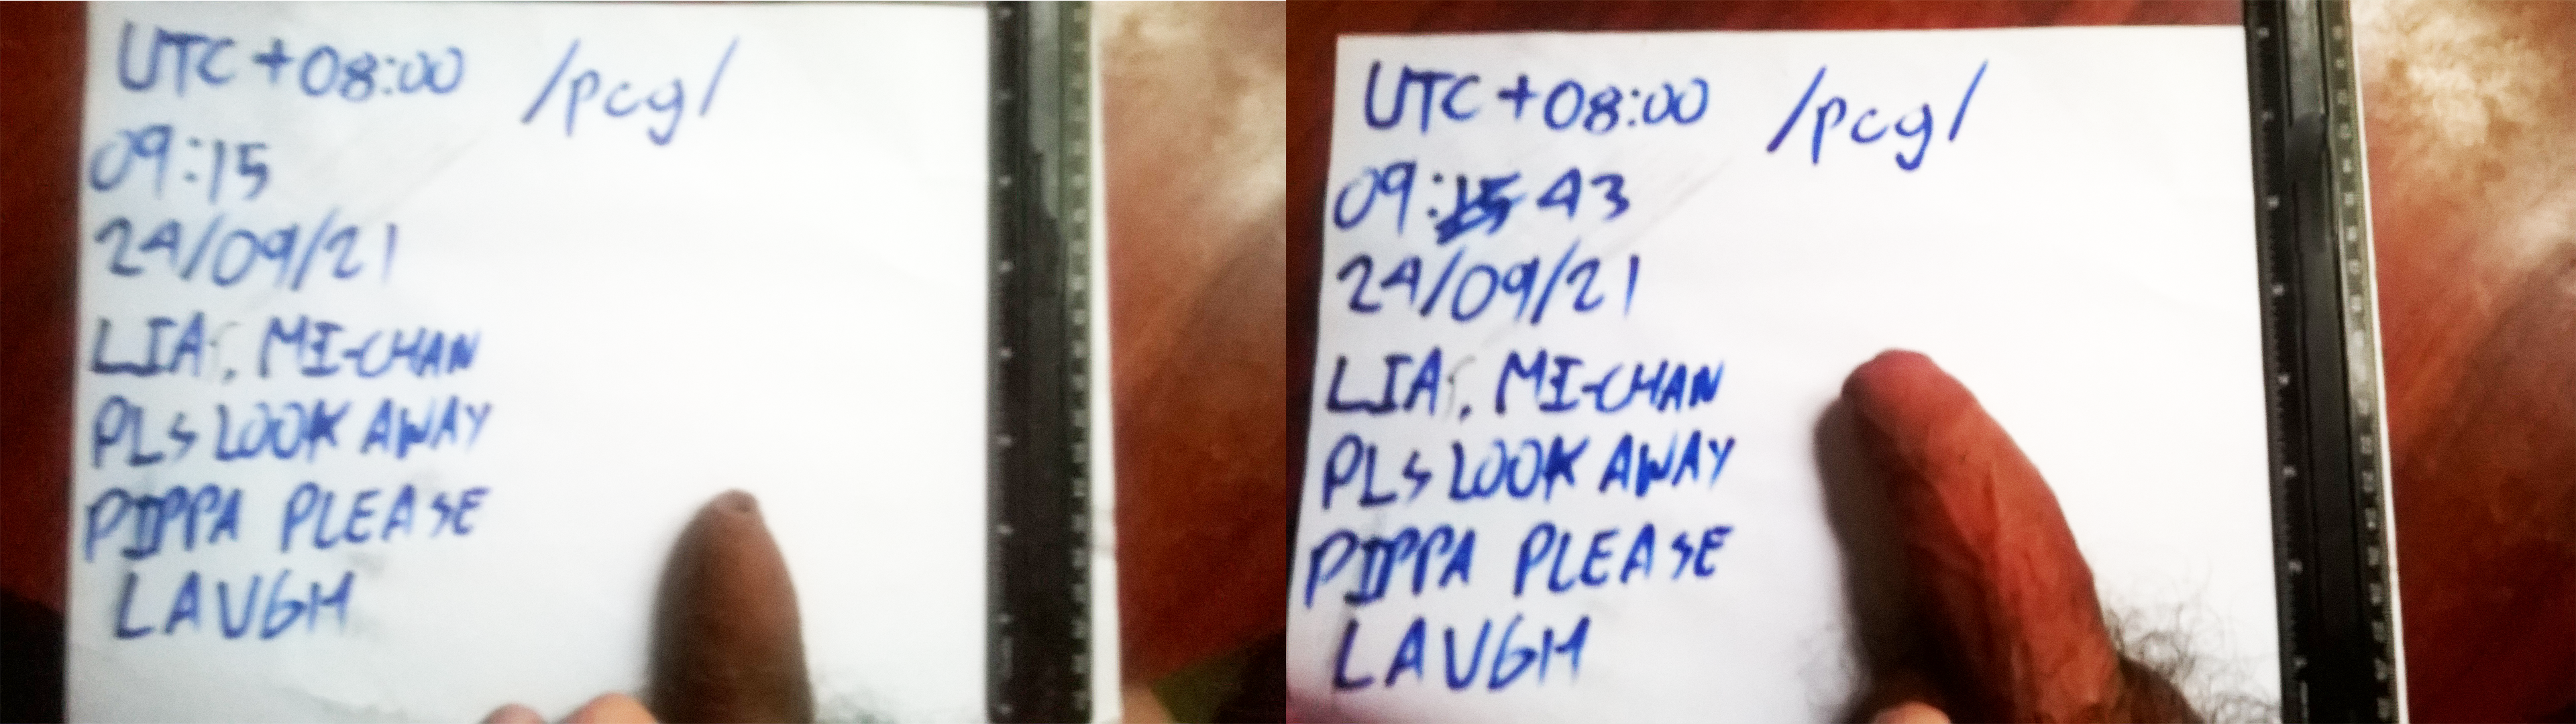 UTC +08:00 /pcg/
09:15
24/09/21
LIA, MI-CHAN
PLS LOOK AWAY
PIPPA PLEASE
LAUGH
UTC +08:00 /pcg/
09:15 43
24/09/21
LIA, MI-CHAN
PLS LOOK AWAY
PIPPA PLEASE
LAUGH